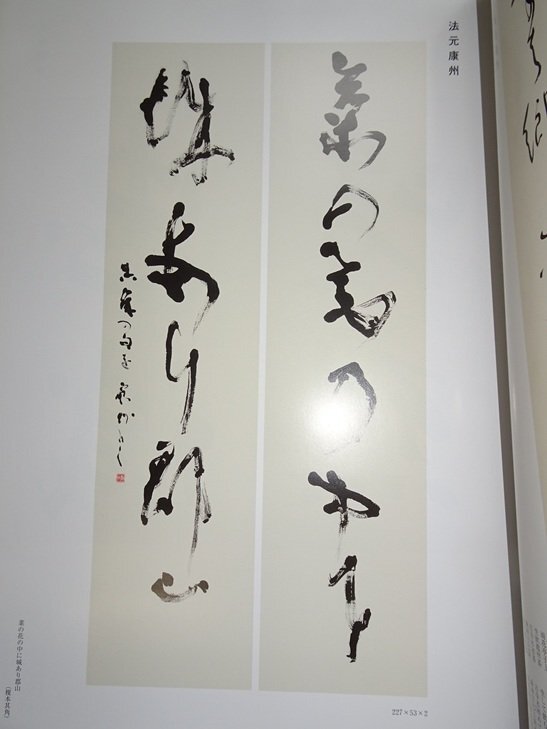 法元康州
菜の花の中に
城あり郡山
其角の句を 康州かく
菜の花の中に城あり郡山
(榎本其角)
227×53×2